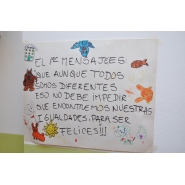 EL 1º MENSAJE ES
QUE AUNQUE TODOS
SOMOS DIFERENTES
ESO NO DEBE IMPEDIR
QUE ENCONTREMOS NUESTRAS
IGUALDADES PARA SER
FELICES!!!